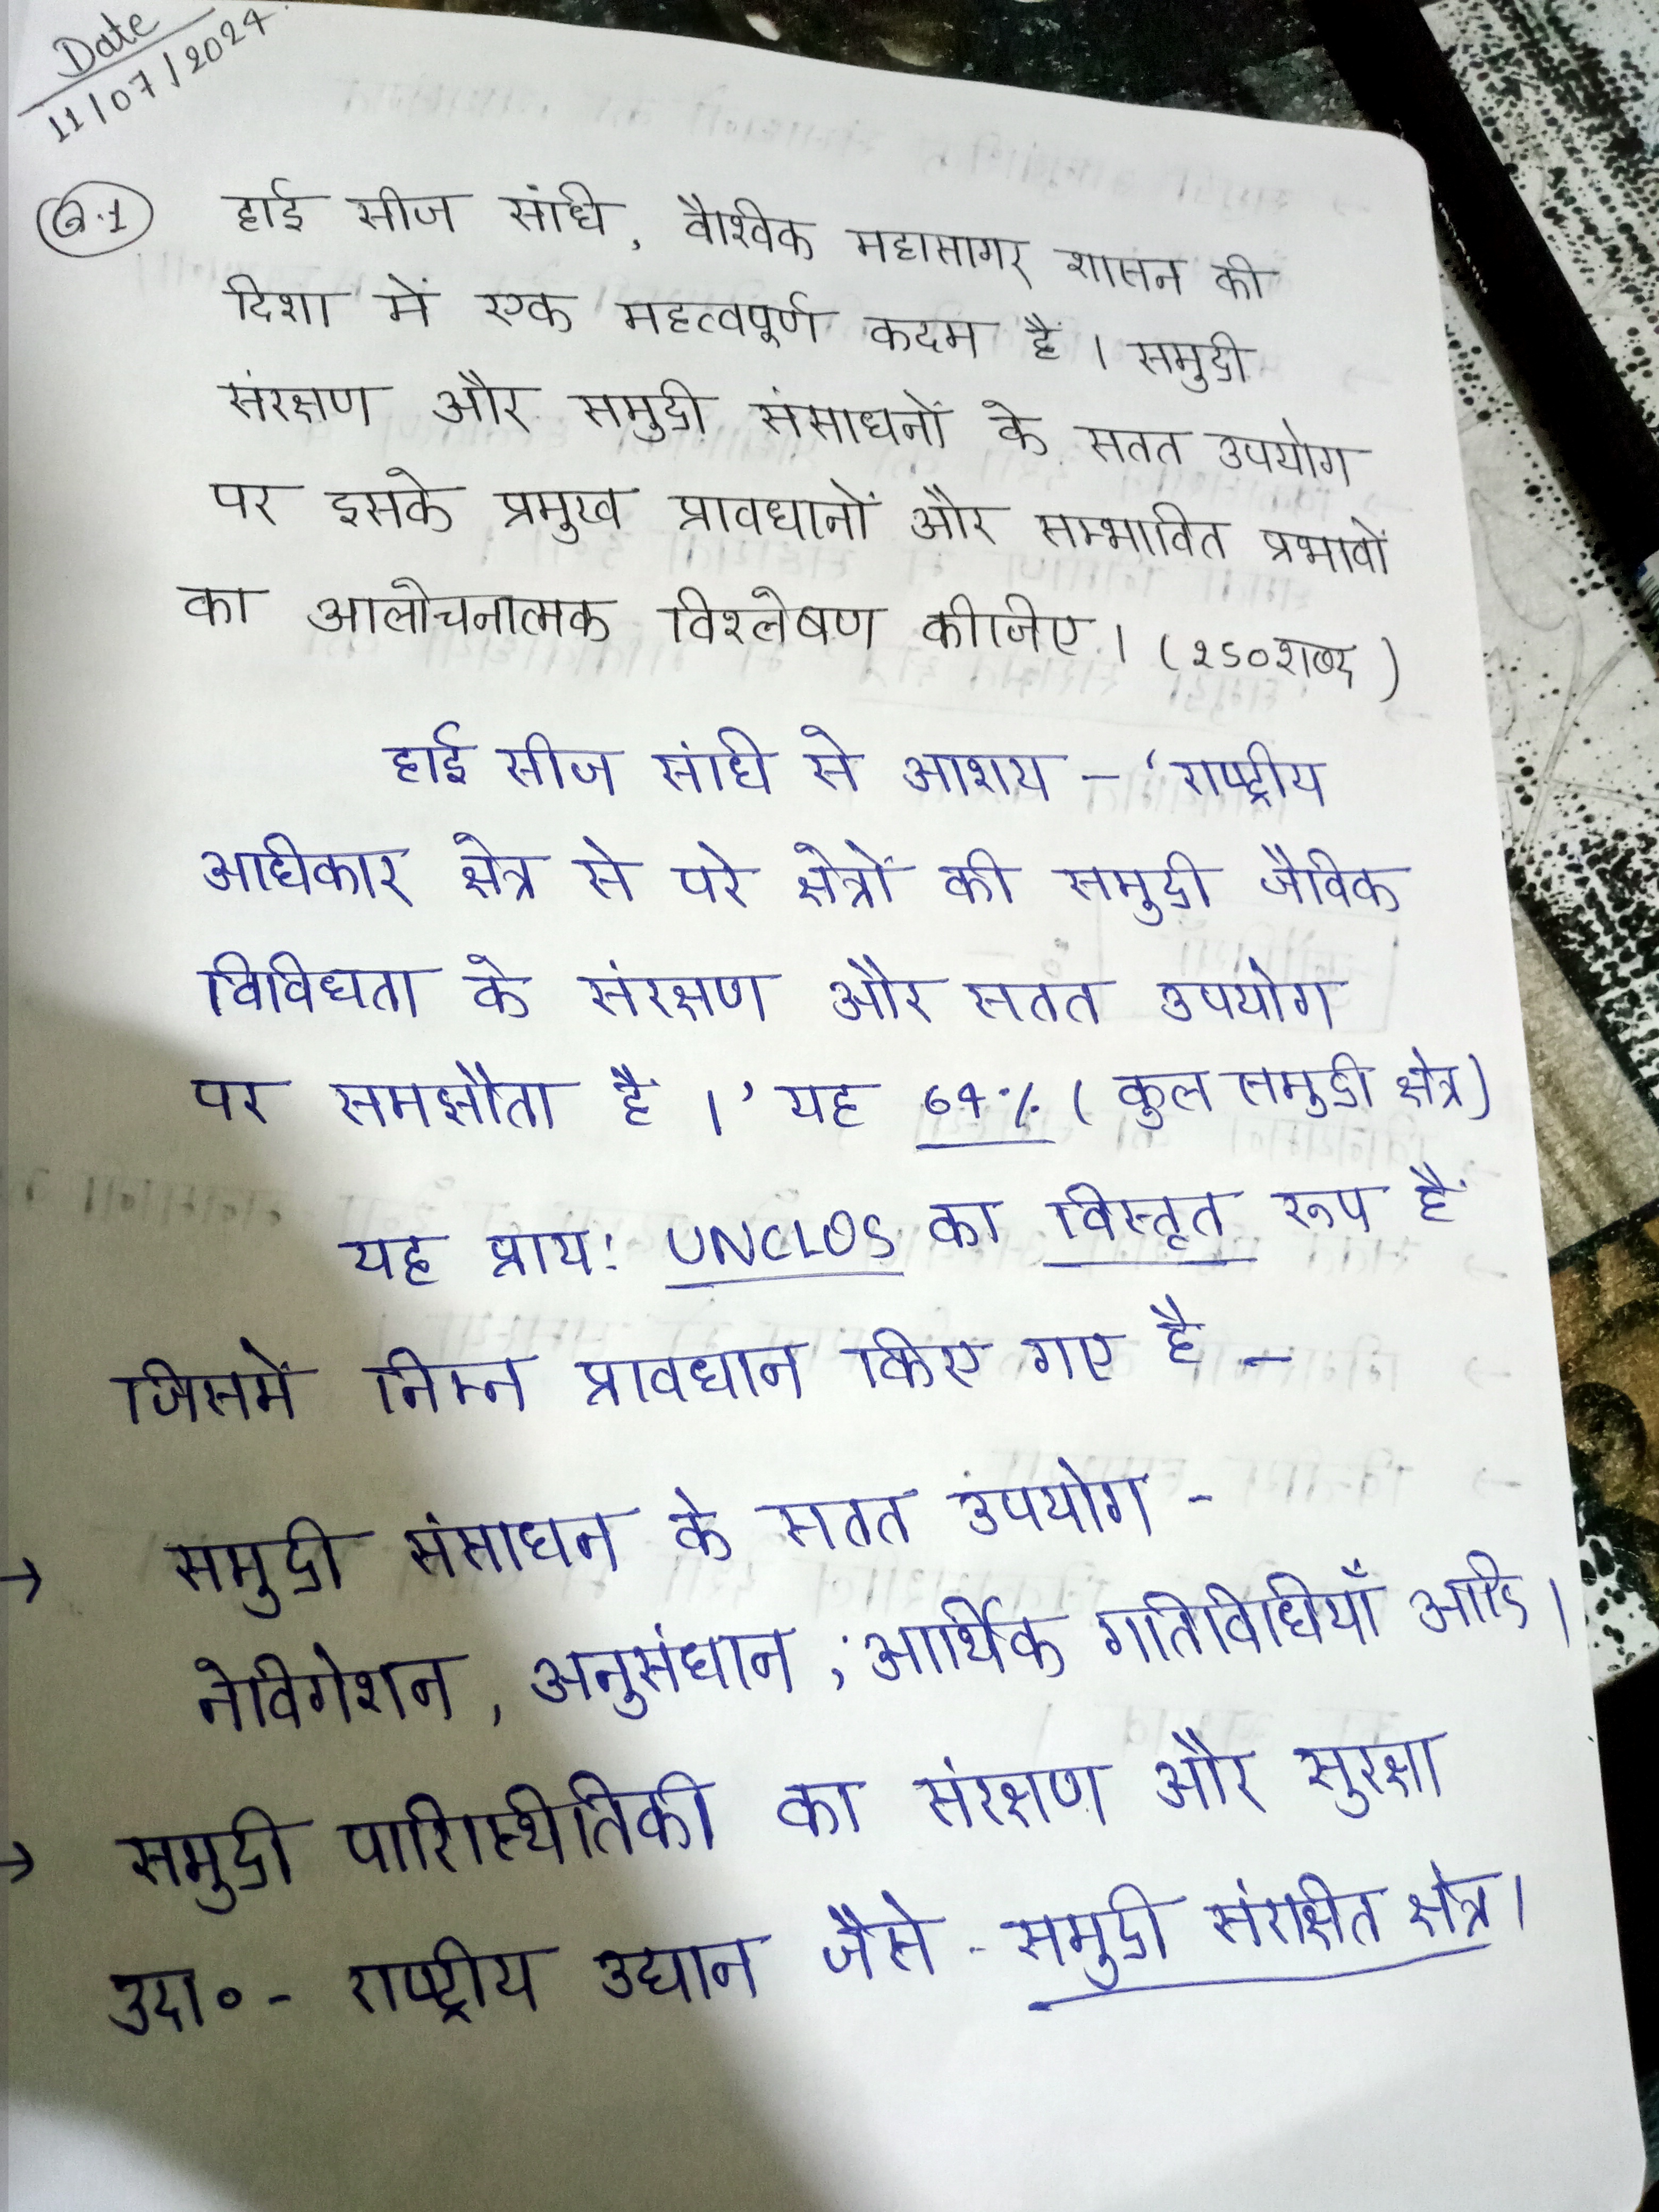 Date
11/07/2024
Q.1 हाई सीज संधि, वैश्विक महासागर शासन की
दिशा में एक महत्वपूर्ण कदम है। समुद्री
संरक्षण और समुद्री संसाधनों के सतत उपयोग
पर इसके प्रमुख प्रावधानों और सम्भावित प्रभावों
का आलोचनात्मक विश्लेषण कीजिए। (250शब्द)
हाई सीज संधि से आशय - 'राष्ट्रीय
अधिकार क्षेत्र से परे क्षेत्रों की समुद्री जैविक
विविधता के संरक्षण और सतत उपयोग
पर समझौता है।' यह 64% (कुल समुद्री क्षेत्र)
यह प्राय: UNCLOS का विस्तृत रूप है
जिसमें निम्न प्रावधान किए गए है -
→ समुद्री संसाधन के सतत उपयोग -
नेविगेशन, अनुसंधान, आर्थिक गतिविधियाँ आदि।
→ समुद्री पारिस्थितिकी का संरक्षण और सुरक्षा
उदा० - राष्ट्रीय उद्यान जैसे - समुद्री संरक्षित क्षेत्र।